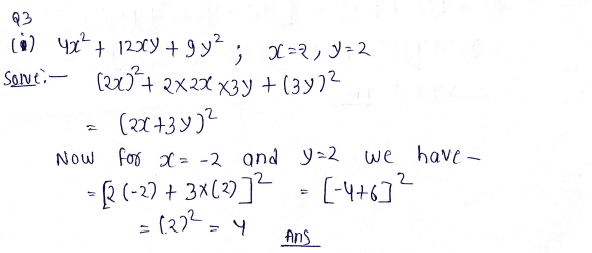 Q3
(i) 4x² + 12xy + 9y² ; x=2, y=2
Solve:— (2x)² + 2×2x×3y + (3y)²
= (2x+3y)²
Now for x= -2 and y=2 we have —
= [2(-2) + 3×(2)]² = [-4+6]²
= (2)² = 4 Ans